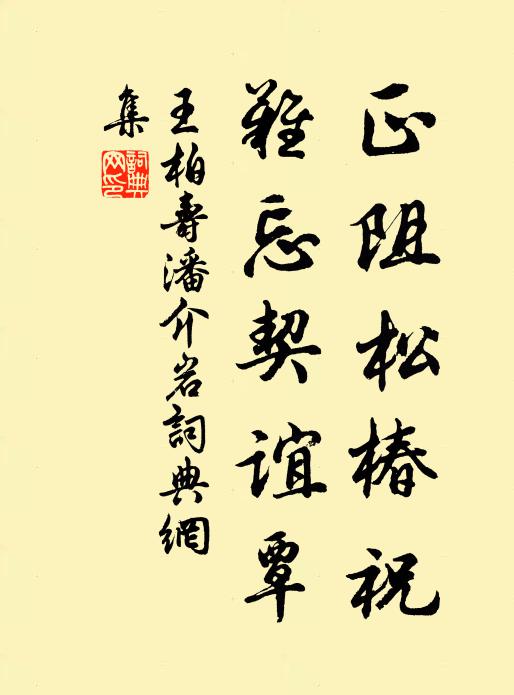 正阻松椿祝
難忘契誼覃
王柏壽潘介岩詞典網
集
詞典
网印